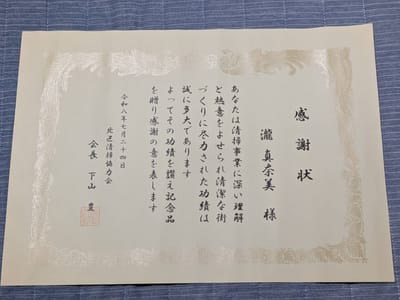 感謝状
瀧 真奈美 様
あなたは清掃事業に深い理解
と熱意をよせられ清潔な街
づくりに尽力された功績は
誠に多大であります
よってその功績を讃え記念品
を贈り感謝の意を表します
令和八年七月二十四日
北区清掃協力会
会長 下山 豊